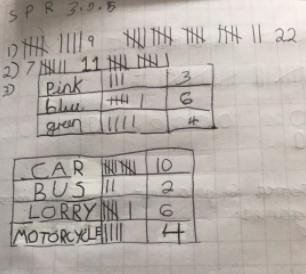 SPR 3.9.5
1) 𝍸 |||| 9 𝍸 𝍸 𝍸 𝍸 || 22
2) 7 𝍸 || 11 𝍸 𝍸 |
3)
pink ||| 3
blue 𝍸 | 6
green |||| 4
CAR 𝍸 𝍸 10
BUS || 2
LORRY 𝍸 | 6
MOTORCYCLE |||| 4